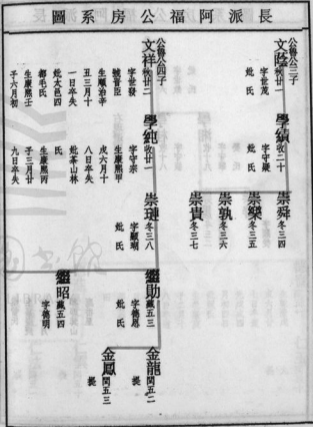 長派阿福公房系圖
公備公三子
文蔭 秋廿一
字世茂
妣 氏
學績 收二十
字守嚴
妣 氏
崇舜 冬三四
崇樂 冬三五
崇孰 冬三六
崇貴 冬三七
公備公四子
文祥 秋廿二
字世發
號晉臣
生順治辛
丑三月十
一日卒失
妣太邑四
都毛氏
生康熙壬
子六月初
學純 收廿一
字守宗
生康熙甲
戌六月十
八日卒失
妣茶山林
氏
生康熙丙
子三月廿
九日卒失
崇璉 冬三八
字嚴瑚
妣 氏
繼勛 藏五三
字德恩
妣 氏
繼昭 藏五四
字德明
金龍 閏五二
金鳳 閏五三